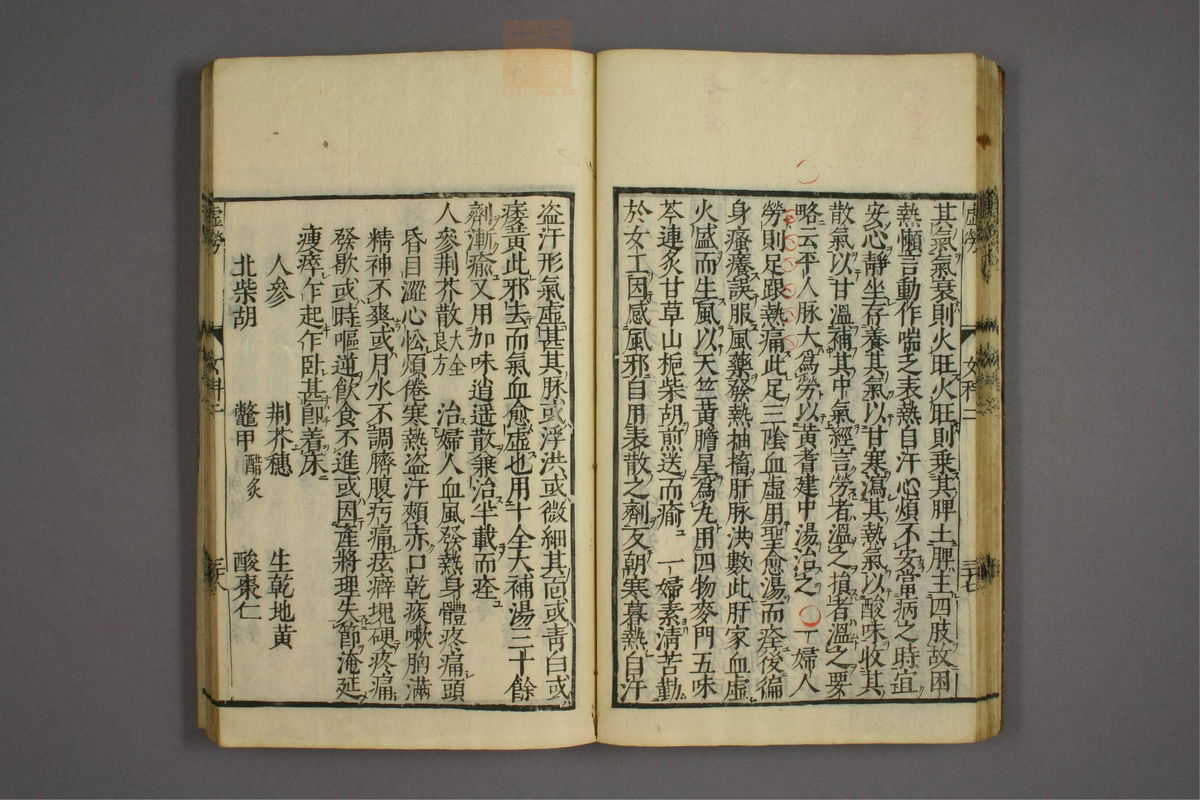 虛勞 女科二 三七
其氣氣衰則火旺火旺則乗其脾土脾主四肢故困
熱懶言動作喘乏表熱自汗心煩不安當病之時宜
安心靜坐存養其氣以甘寒瀉其熱氣以酸味收其
散氣以甘溫補其中氣經言勞者溫之損者溫之要
略云平人脉大爲勞以黄耆建中湯治之 一婦人
勞則足跟熱痛此足三陰血虛用聖愈湯而痊後徧
身瘙癢誤服風藥發熱抽搐肝脉洪數此肝家血虛
火盛而生風以天竺黄膽星爲丸用四物麥門五味
芩連炙甘草山梔柴胡煎送而瘉 一婦素淸苦勤
於女工因感風邪自用表散之劑反朝寒暮熱自汗
盗汗形氣虛甚其脉或浮洪或微細其面或靑白或
痿黄此邪去而氣血愈虛也用十全大補湯三十餘
劑漸瘉又用加味逍遥散兼治半載而痊
人參荆芥散大全良方 治婦人血風發熱身體疼痛頭
昏目澀心忪煩倦寒熱盗汗頰赤口乾痰嗽胸滿
精神不爽或月水不調臍腹㽲痛痃癖塊硬疼痛
發歇或時嘔逆飮食不進或因產將理失節淹延
瘦瘁乍起乍臥甚卽着床
人參 荆芥穗 生乾地黄
北柴胡 鼈甲醋炙 酸棗仁
虛勞 女科二 三八